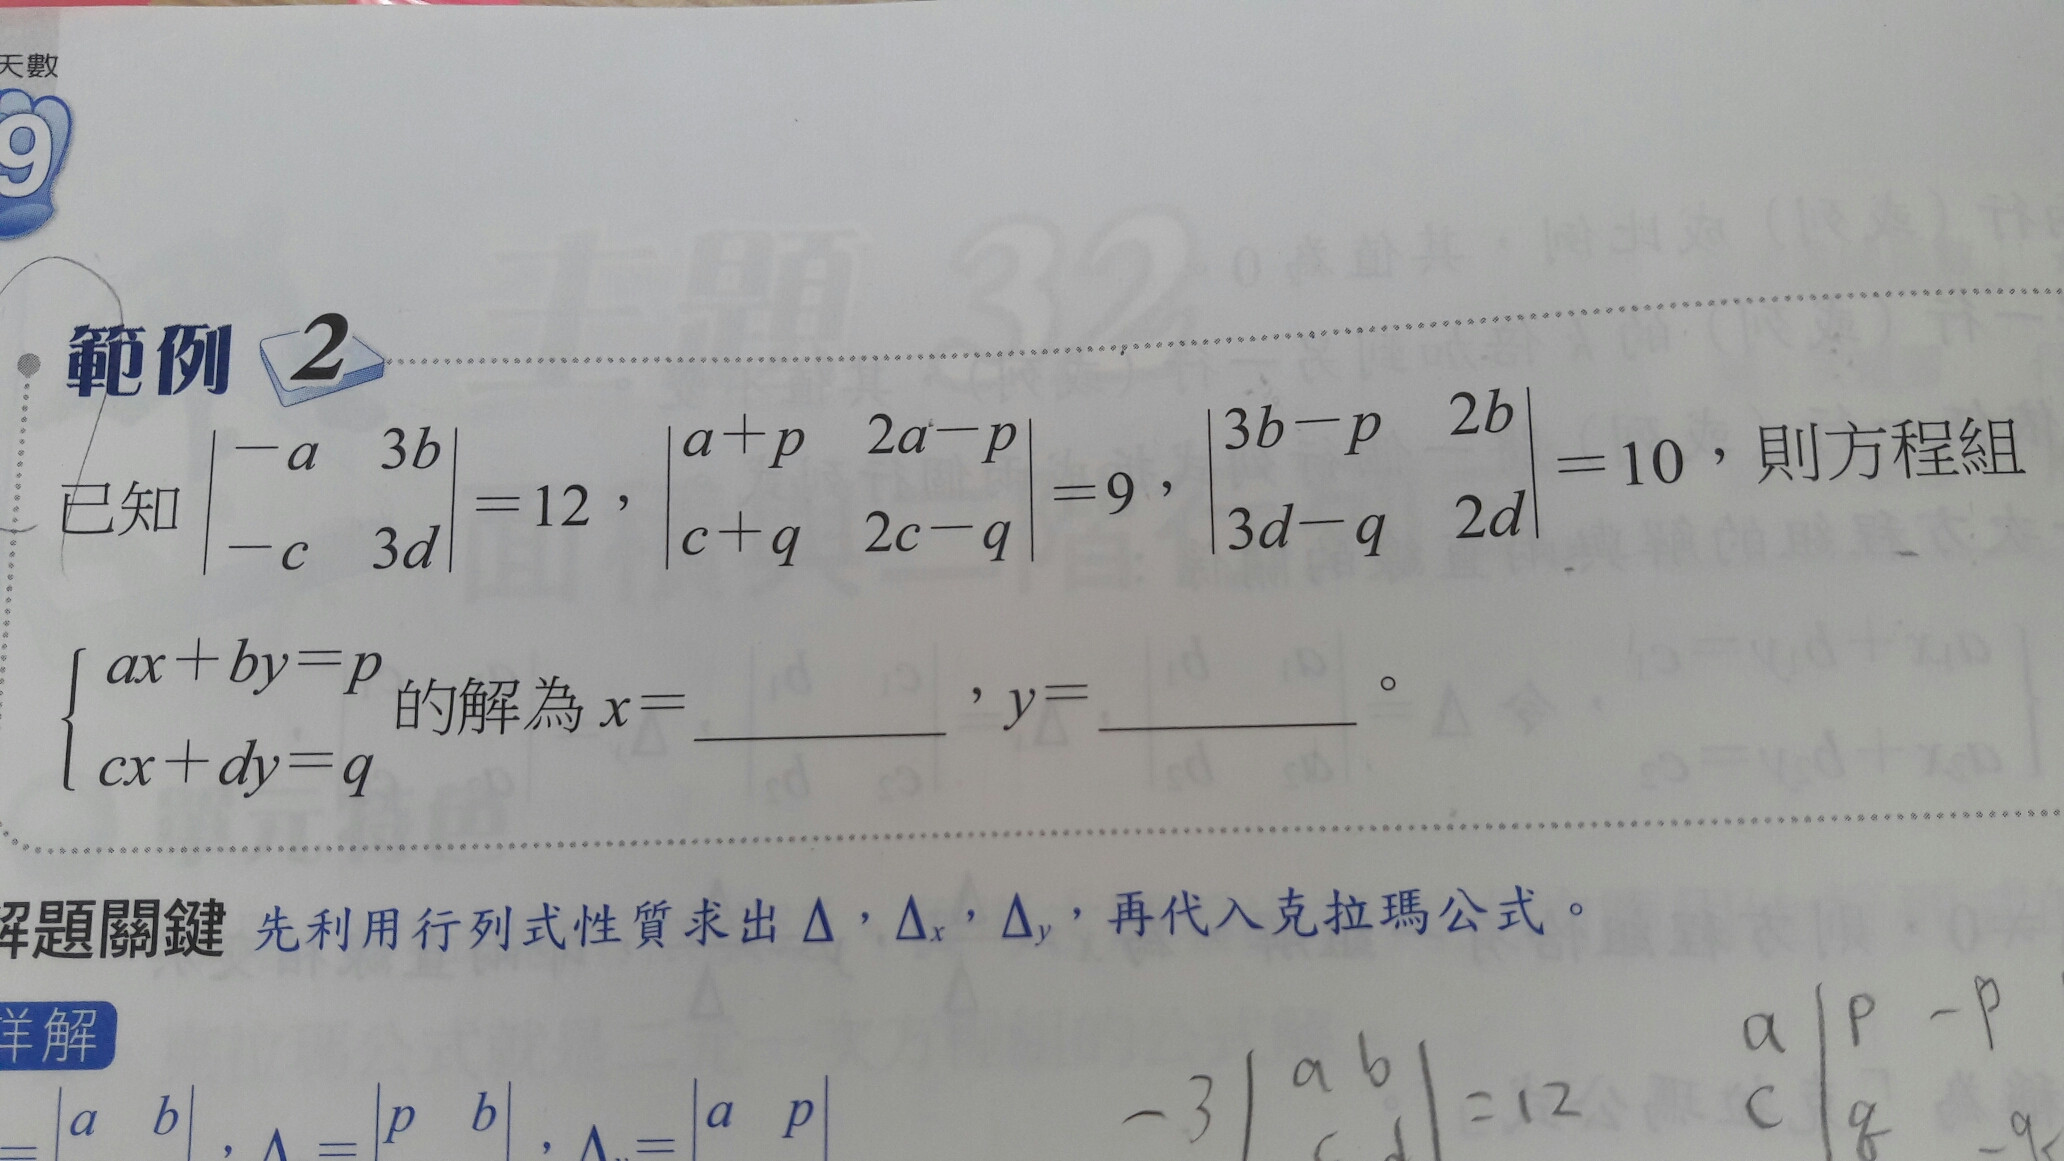 天數
9
範例 2
已知 |−a 3b; −c 3d|=12，|a+p 2a−p; c+q 2c−q|=9，|3b−p 2b; 3d−q 2d|=10，則方程組
{ax+by=p; cx+dy=q 的解為 x=________，y=________。
解題關鍵 先利用行列式性質求出 Δ，Δx，Δy，再代入克拉瑪公式。
詳解
=|a b|，Δ =|p b|，Δy=|a p|
−3|a b; c d|=12
a |p −p
c |q −q